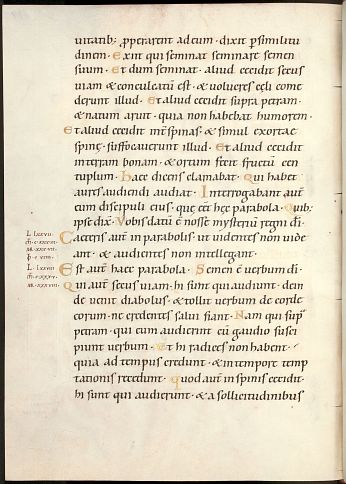 uitatib; ꝓperarent ad eum · dixit p similitu
dinem · Exiit qui seminat seminare semen
suum · Et dum seminat · aliud cecidit secus
uiam & conculcatū est · & uolucres cęli come
derunt illud · Et aliud cecidit supra petram ·
& natum aruit · quia non habebat humorem ·
Et aliud cecidit int spinas · & simul exortae
spinę · suffocauerunt illud · Et aliud cecidit
in terram bonam · & ortum fecit fructū cen
tuplum · Haec dicens clamabat · Qui habet
aures audiendi audiat · Interrogabant aut
eum discipuli eius · quę eēt hęc parabola · Quib;
ipse dix · Vobis datū ē nosse mysteriū regni dī ·
Caeteris aut in parabolis · ut uidentes non uide
ant · & audientes non intellegant ·
Est aut haec parabola · Semen ē uerbum dī ·
Qui aut secus uiam · hi sunt qui audiunt · dein
de uenit diabolus · & tollit uerbum de corde
eorum · ne credentes salui fiant · Nam qui sup
petram · qui cum audierint cū gaudio susci
piunt uerbum · Et hi radices non habent ·
quia ad tempus credunt · & in tempore temp
tationis recedunt · Quod aut in spinis cecidit ·
hi sunt qui audierunt · & a sollicitudinibus